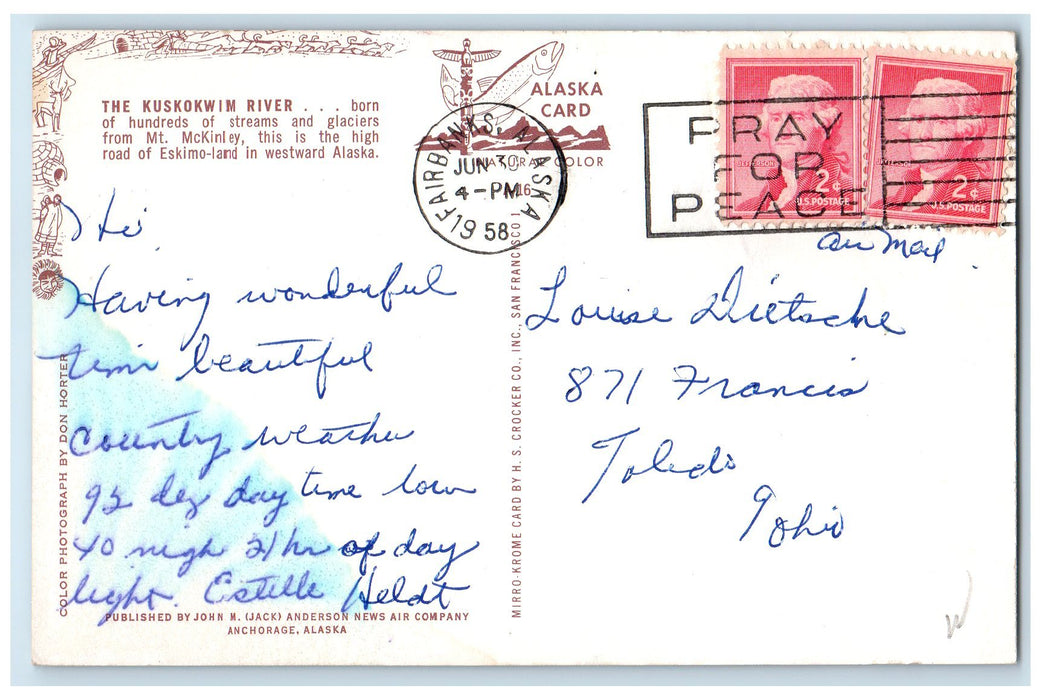 THE KUSKOKWIM RIVER . . . born
of hundreds of streams and glaciers
from Mt. McKinley, this is the high
road of Eskimo-land in westward Alaska.
ALASKA
CARD
NATURAL COLOR
FAIRBANKS, ALASKA
JUN 30
4-PM
1958
PRAY
FOR
PEACE
JEFFERSON
2¢
U.S. POSTAGE
2¢
U.S. POSTAGE
air mail
Hi
Having wonderful
time beautiful
Country weather
deg day time low
40 nigh 21 hr of day
light. Estelle Heldt
Louise Dietsche
871 Francis
Toledo
Ohio
COLOR PHOTOGRAPH BY DON HORTER
MIRRO-KROME CARD BY H. S. CROCKER CO., INC., SAN FRANCISCO 1,
PUBLISHED BY JOHN M. (JACK) ANDERSON NEWS AIR COMPANY
ANCHORAGE, ALASKA
W